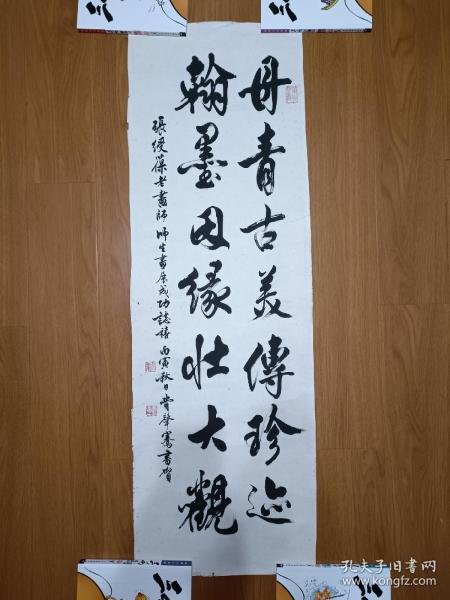 丹青古美傳珍迹
翰墨因緣壯大觀
張綬葆老畫師 師生畫展成功誌禧 丙寅秋日 費聲騫書賀
孔夫子旧书网
www.kongfz.com